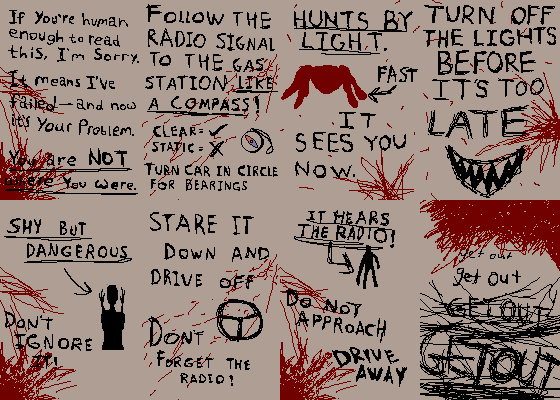 If you're human
enough to read
this, I'm Sorry.
It means I've
failed—and now
it's Your Problem.
You are NOT
where You were.
FOLLOW THE
RADIO SIGNAL
TO THE GAS
STATION LIKE
A COMPASS!
CLEAR=✓
STATIC=X
TURN CAR IN CIRCLE
FOR BEARINGS
HUNTS BY
LIGHT.
FAST
IT
SEES YOU
NOW.
TURN OFF
THE LIGHTS
BEFORE
IT'S TOO
LATE
SHY BUT
DANGEROUS
DON'T
IGNORE
IT!
STARE IT
DOWN AND
DRIVE OFF
DONT
FORGET THE
RADIO!
IT HEARS
THE RADIO!
DO NOT
APPROACH
DRIVE
AWAY
get out
get out
GET OUT
GET OUT